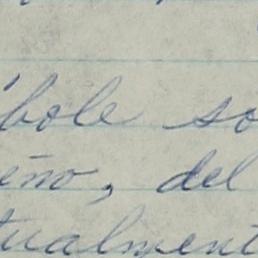 bole so
eño, del
tualment